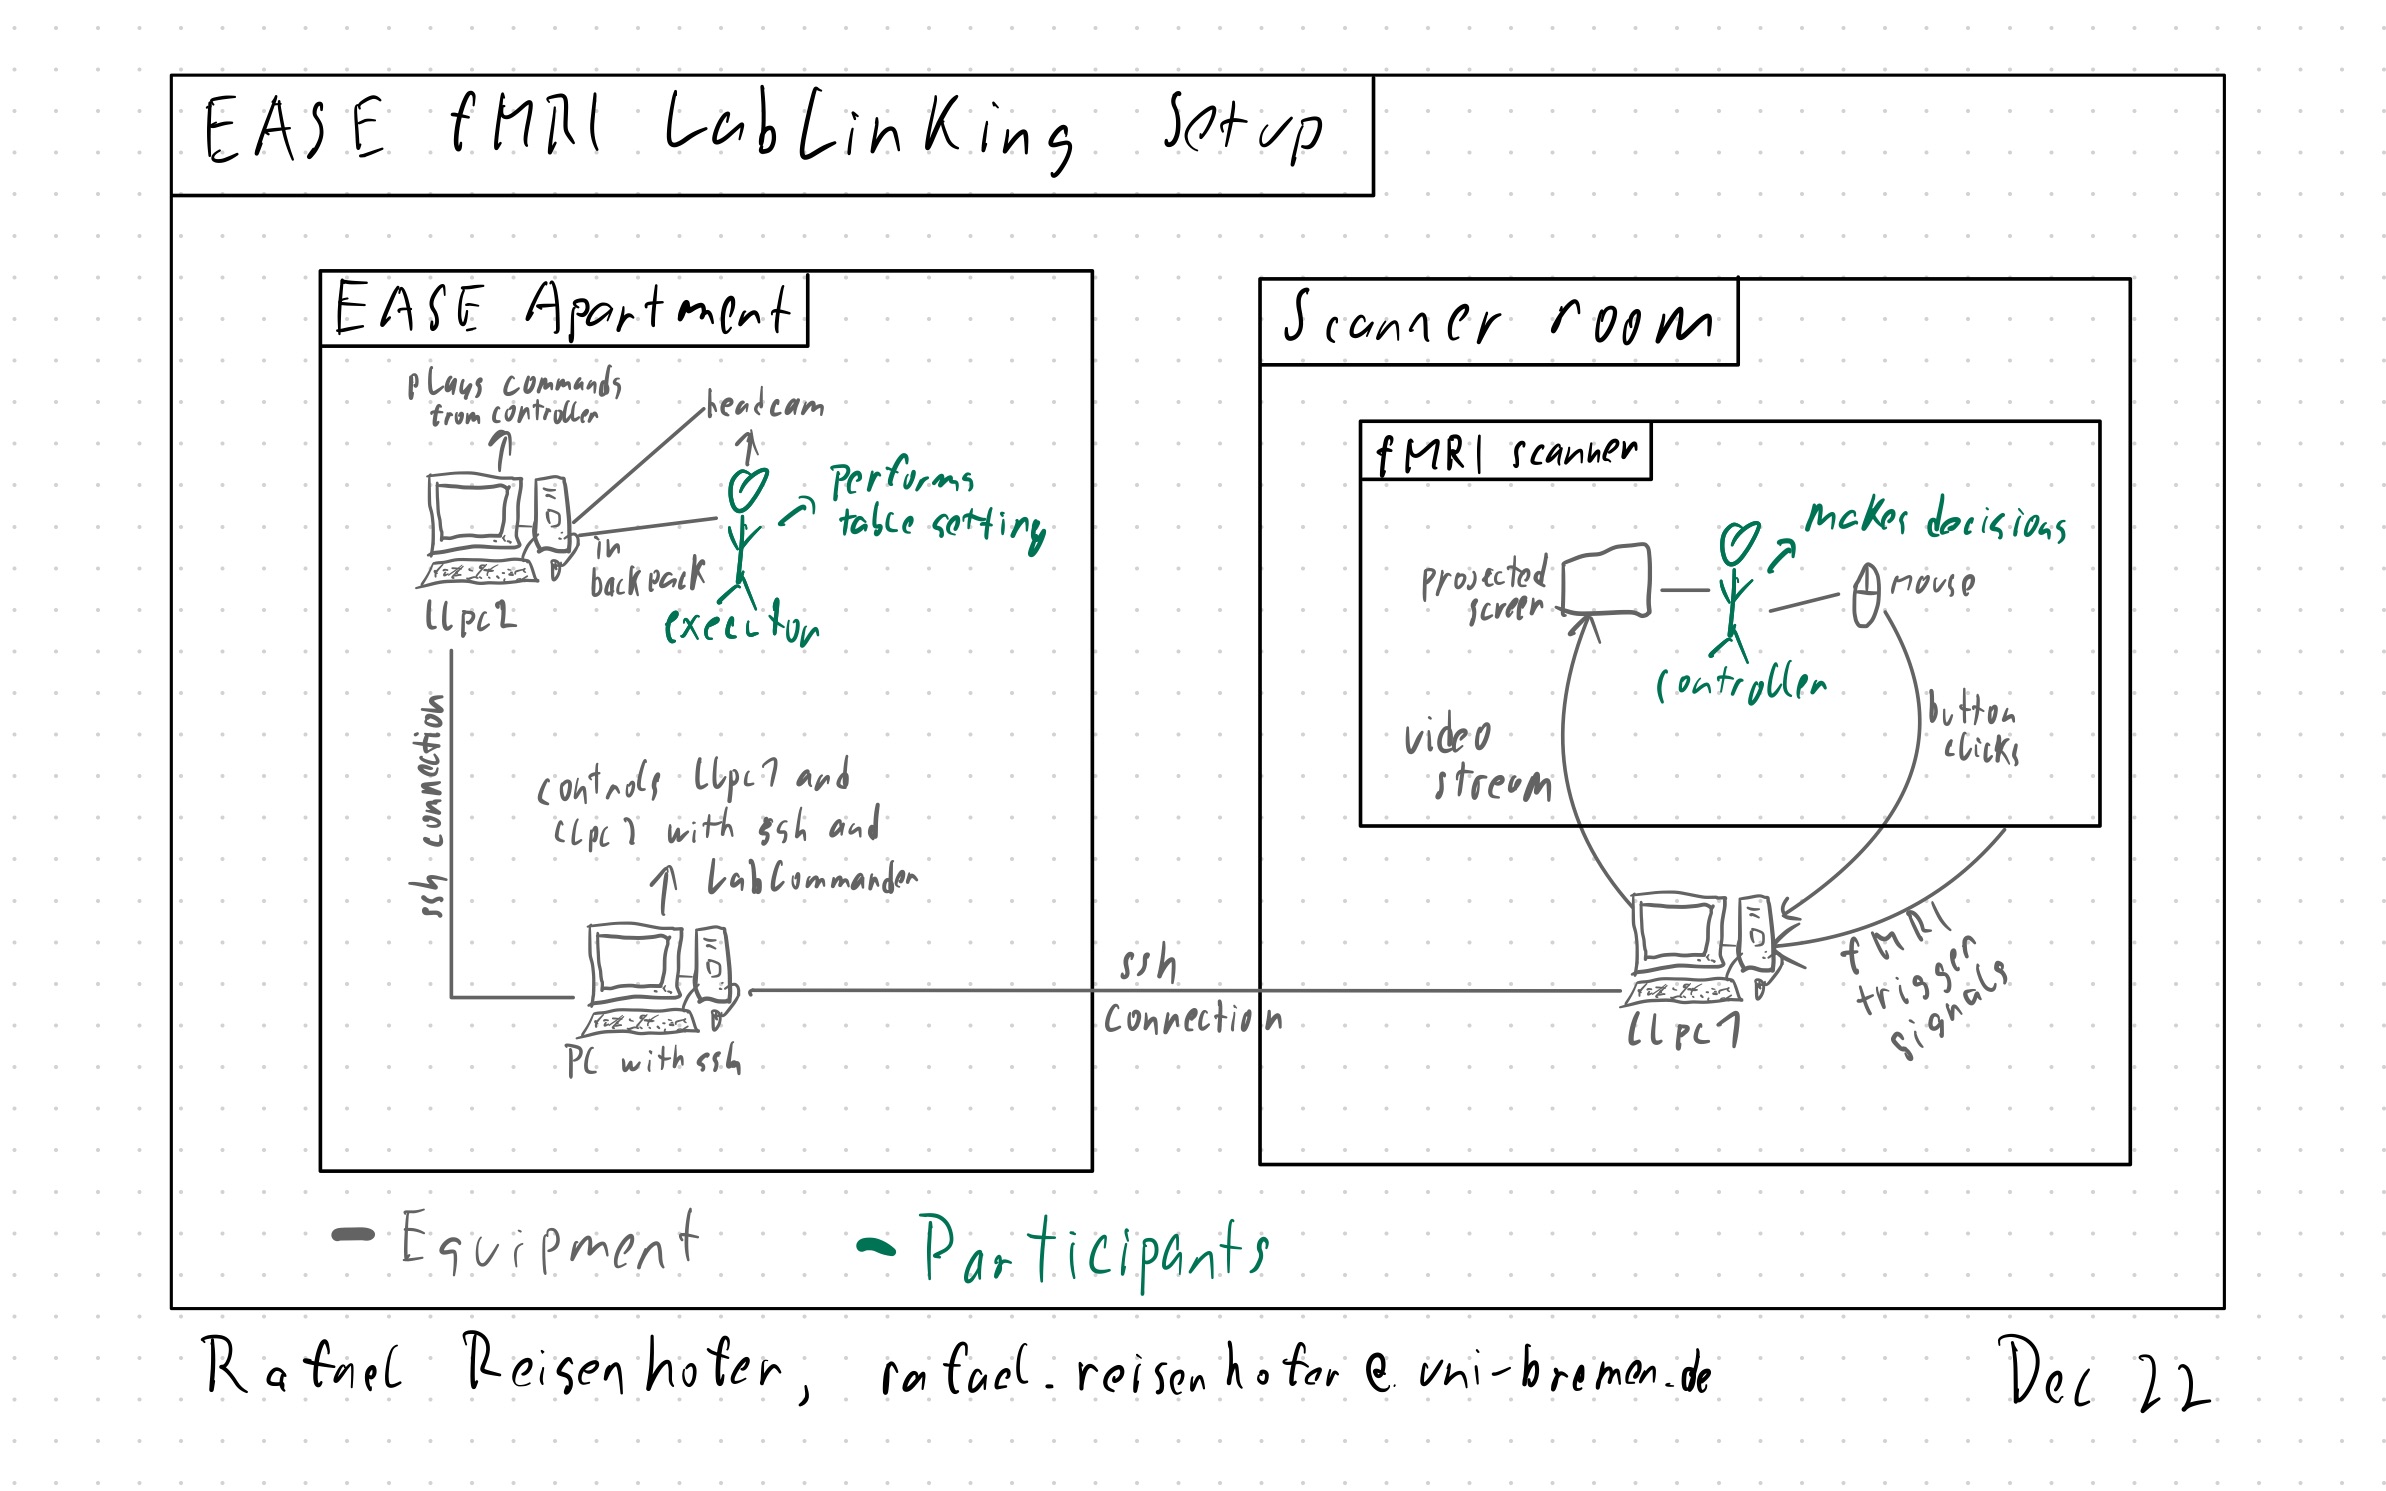 EASE fMRI LabLinking Setup
EASE Apartment
plays commands
from controller
headcam
performs
table setting
in
backpack
llpc2
executor
ssh connection
controls llpc1 and
llpc2 with ssh and
LabCommander
PC with ssh
ssh
connection
Scanner room
fMRI scanner
makes decisions
projected
screen
mouse
controller
video
stream
button
clicks
fMRI
trigger
signals
llpc1
Equipment
Participants
Rafael Reisenhofer, rafael.reisenhofer@uni-bremen.de
Dec 22